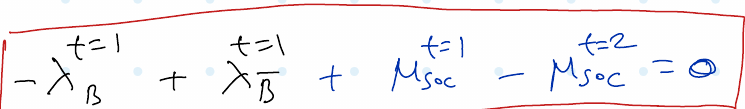 $-\lambda_{B}^{t=1} + \lambda_{\overline{B}}^{t=1} + \mu_{soc}^{t=1} - \mu_{soc}^{t=2} = 0$